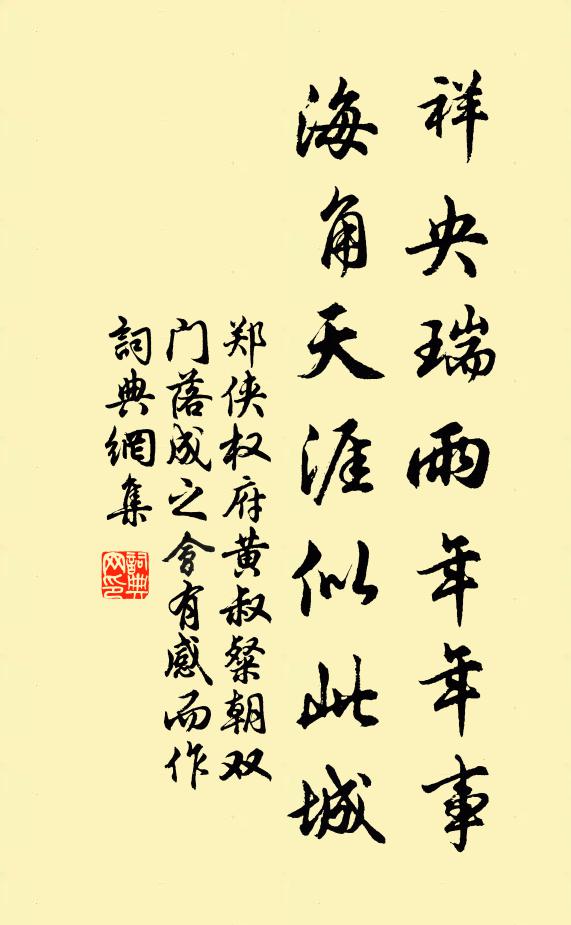 祥央瑞雨年年事
海角天涯似此城
郑侠权府黄叔粲朝双
门落成之会有感而作
詞典網集
詞典網印